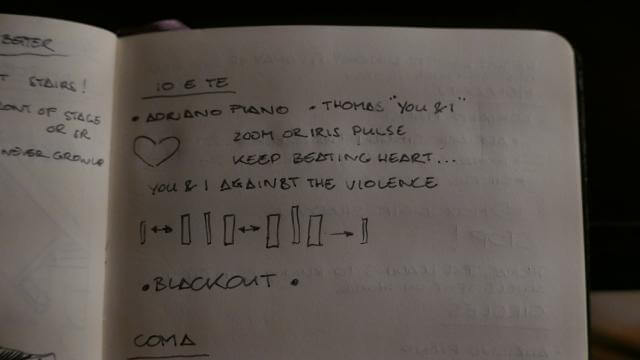 BETTER
STAIRS!
FRONT OF STAGE
OR
NEVER GROWN
IO E TE
• ADRIANO PIANO • THOMAS "YOU & I"
ZOOM OR IRIS PULSE
KEEP BEATING HEART...
YOU & I AGAINST THE VIOLENCE
• BLACKOUT •
COMA